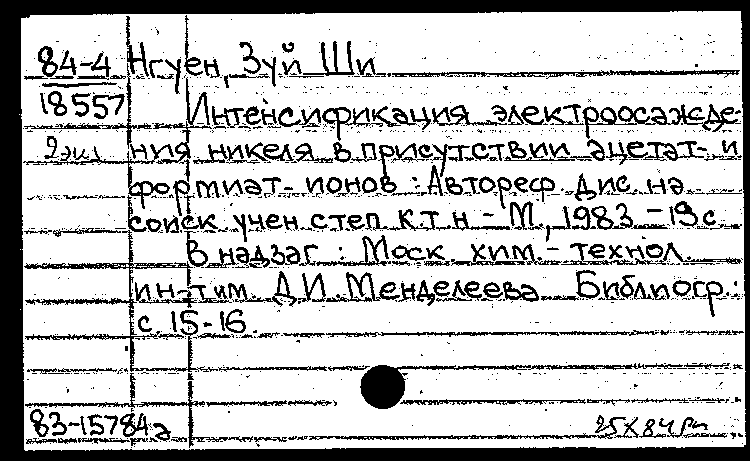 84-4 Нгуен, Зуй Ши
18557 Интенсификация электроосажде-
2экз ния никеля в присутствии ацетат- и
формиат- ионов : Автореф. дис. на
соиск. учен. степ. к.т.н. - М., 1983 - 19 с.
В надзаг : Моск. хим.- технол.
ин-т им. Д.И. Менделеева. Библиогр.:
с. 15-16.
83-15784а